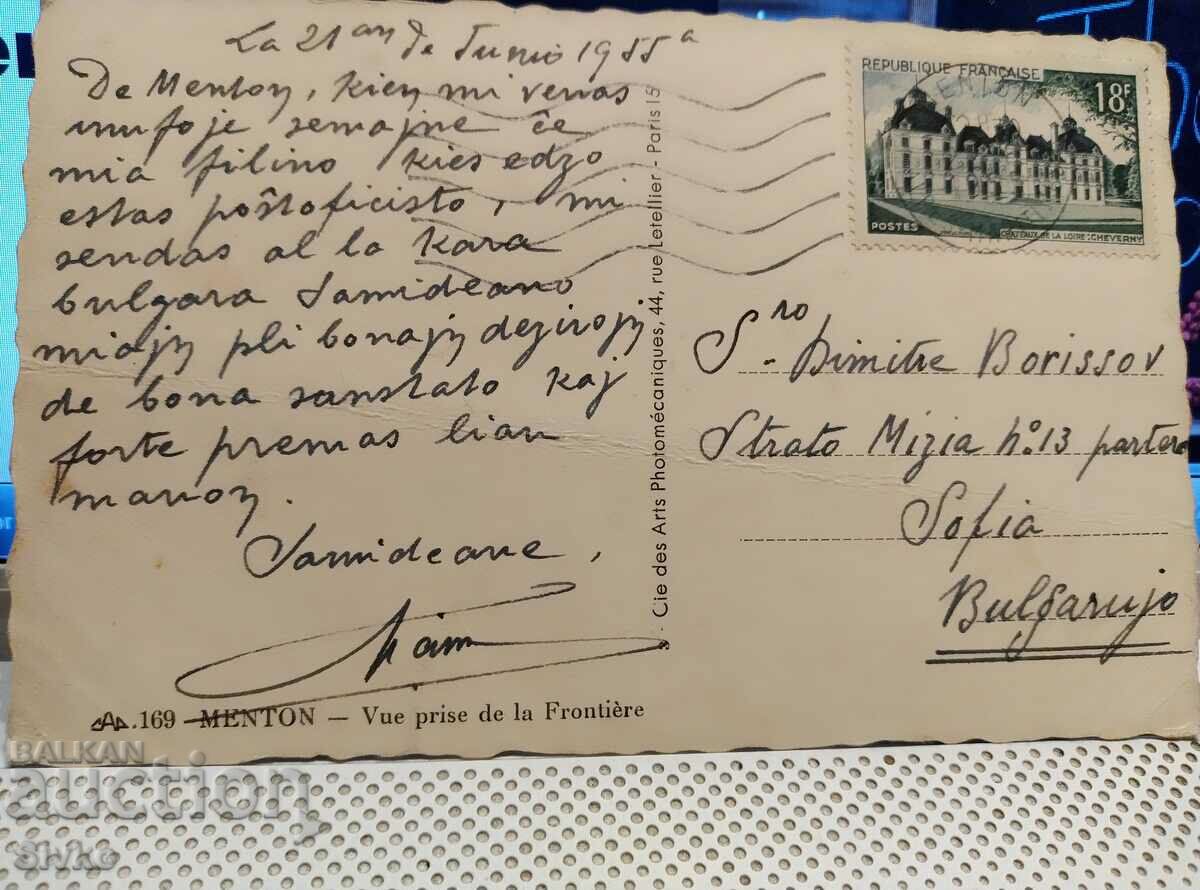 La 21an de Junio 1955a
De Menton, kien mi venas
unufoje semajne ĉe
mia filino kies edzo
estas poŝtoficisto, mi
sendas al la kara
bulgara Samideano
miajn pli bonajn dezirojn
de bona sanstato kaj
forte premas lian
manon.
Samideane,
169 MENTON – Vue prise de la Frontière
Cie des Arts Photomécaniques, 44, rue Letellier - Paris 15
REPUBLIQUE FRANÇAISE
18F
POSTES
CHATEAUX DE LA LOIRE : CHEVERNY
MENTON
Sro Dimitre Borissov
Strato Mizia no 13 partero
Sofia
Bulgarujo
BALKAN
auction
Sivko